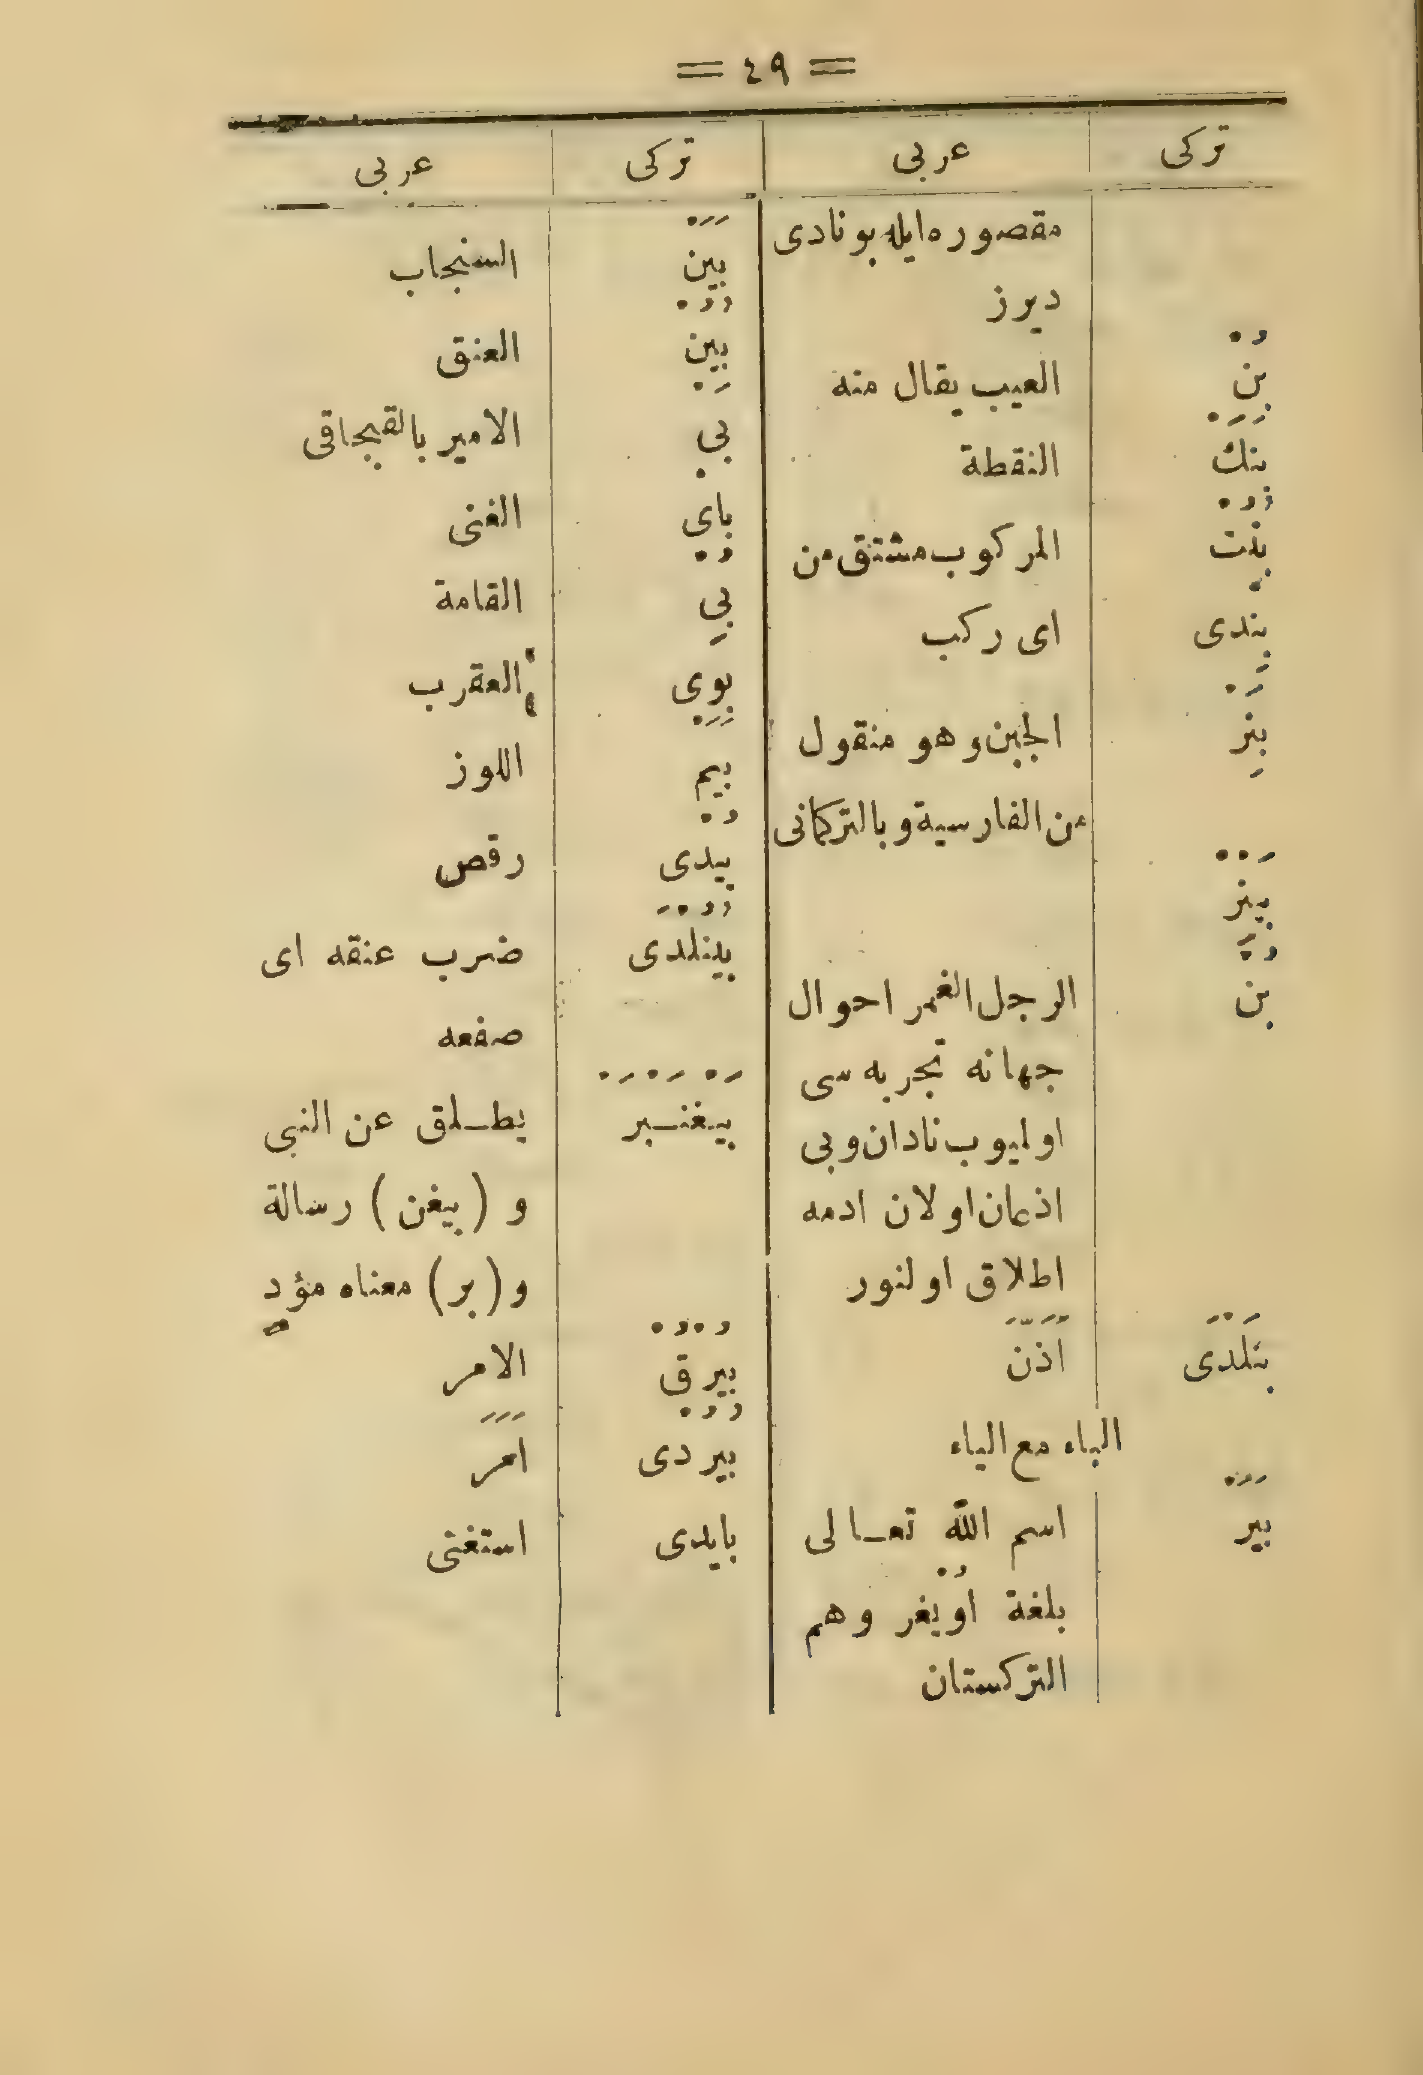 = ٤٩ =
تركى عربى تركى عربى
مقصوره ايله بو نادى
ديرز
بن العيب يقال منه
بنك النقطة
بنت المركوب مشتق من
بندى اى ركب
بنر الجبن وهو منقول
من الفارسية وبالتركمانى
بينر
بن الرجل الغمر احوال
جهانه تجربه سى
اوليوب نادان وبى
اذعان اولان ادمه
اطلاق اولنور
بنلدى اذن
الباء مع الياء
بير اسم الله تعالى
بلغة اويغر وهم
التركستان
بين السنجاب
بين العنق
بى الامير بالقبجاقى
باى الغنى
بى القامة
بوى العقرب
بيم اللوز
بيدى رقص
بينلدى ضرب عنقه اى
صفعه
بيغنبر يطلق عن النبى
و (بيغن) رسالة
و (بر) معناه مؤد
بيرق الامر
بيردى امر
بايدى استغنى